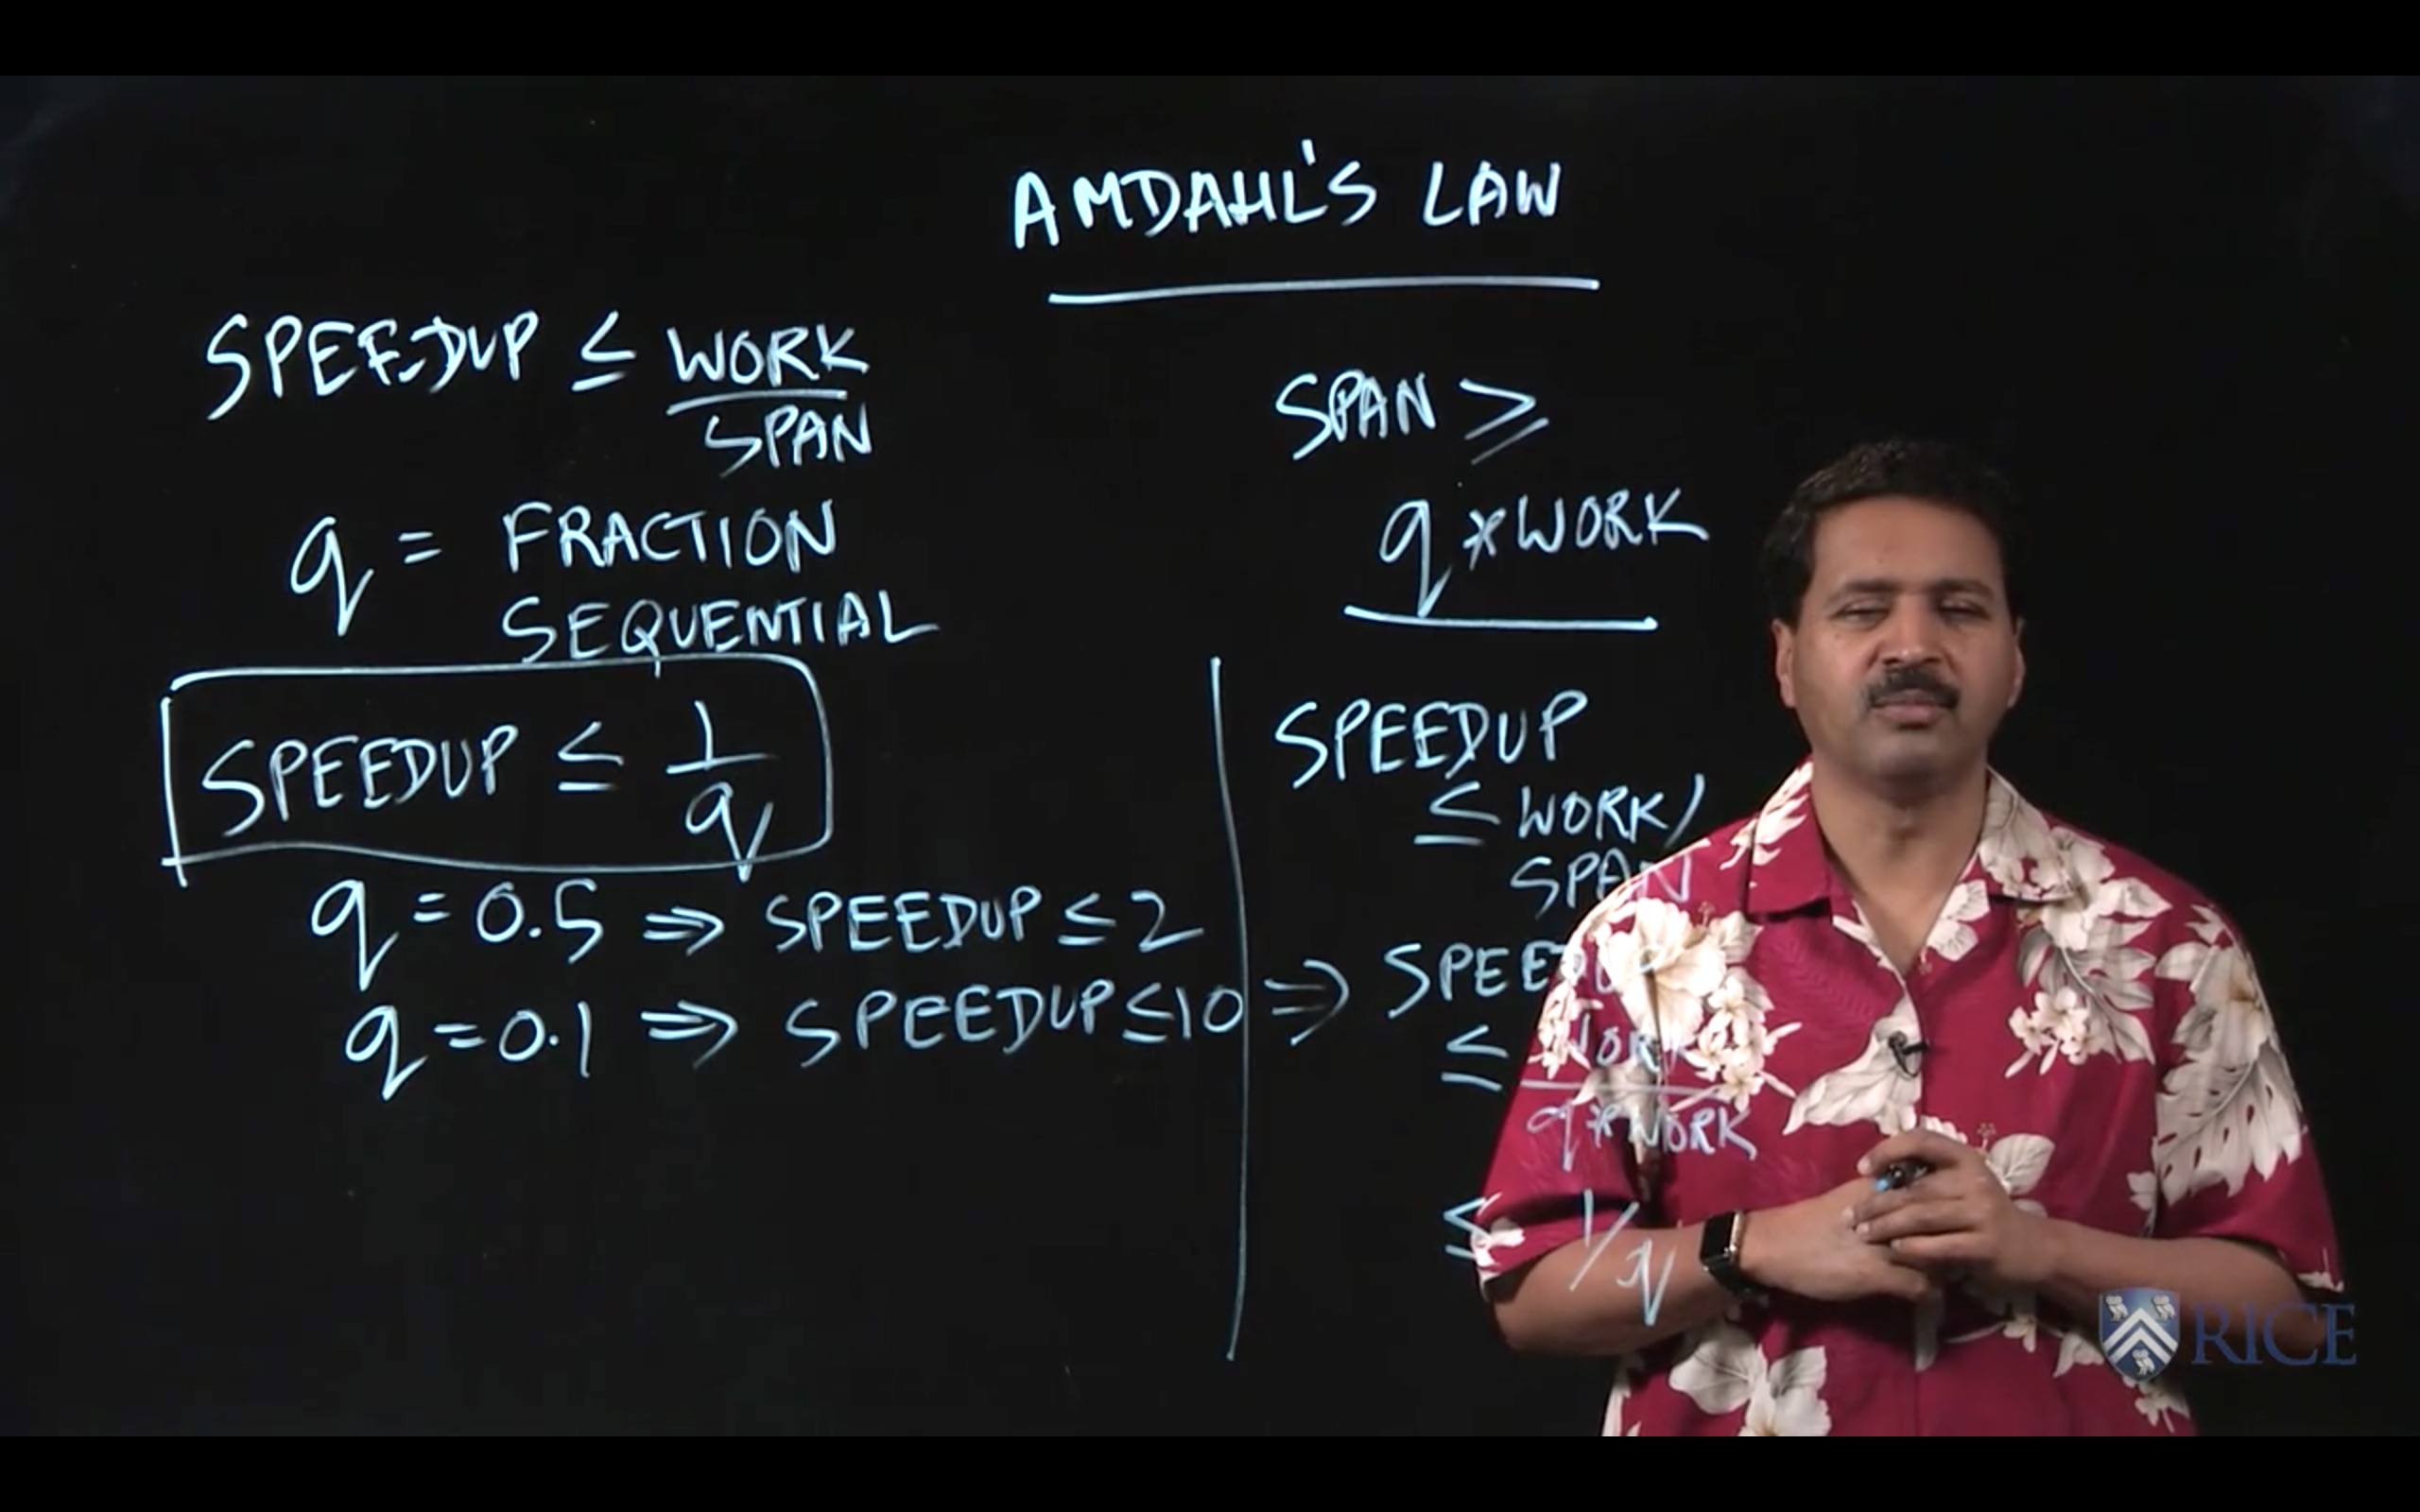 AMDAHL'S LAW
SPEEDUP ≤ WORK
SPAN
q = FRACTION
SEQUENTIAL
SPEEDUP ≤ 1
q
q = 0.5 ⇒ SPEEDUP ≤ 2
q = 0.1 ⇒ SPEEDUP ≤ 10
SPAN ≥
q * WORK
SPEEDUP
≤ WORK/
SPAN
⇒ SPEEDUP
≤ WORK
q * WORK
≤ 1/q
RICE